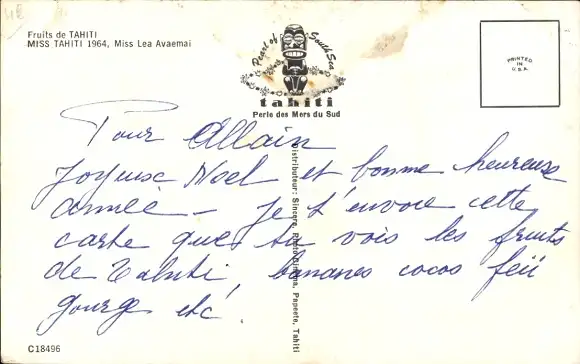 Fruits de TAHITI
MISS TAHITI 1964, Miss Lea Avaemai
Pearl of South Sea
tahiti
Perle des Mers du Sud
PRINTED
IN
U.S.A.
Pour Allain
Joyeuse Noel et bonne heureuse
année – je t'envoie cette
carte que tu vois les fruits
de Tahiti, bananes cocos feii
etc.
Distributeur: Sincere Photo Cinema, Papeete, Tahiti
C18496